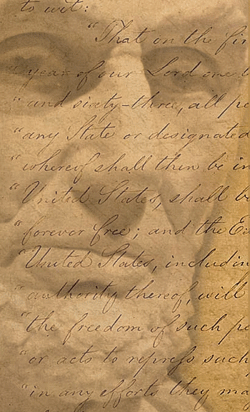 to wit:
"That on the fir
"year of our Lord one
"and sixty-three, all p
"any State or designated
"whereof shall then be in
"United States, shall be
"forever free; and the Ex
"United States, includin
"authority thereof, will
"the freedom of such p
"or acts to repress such
"in any efforts they ma